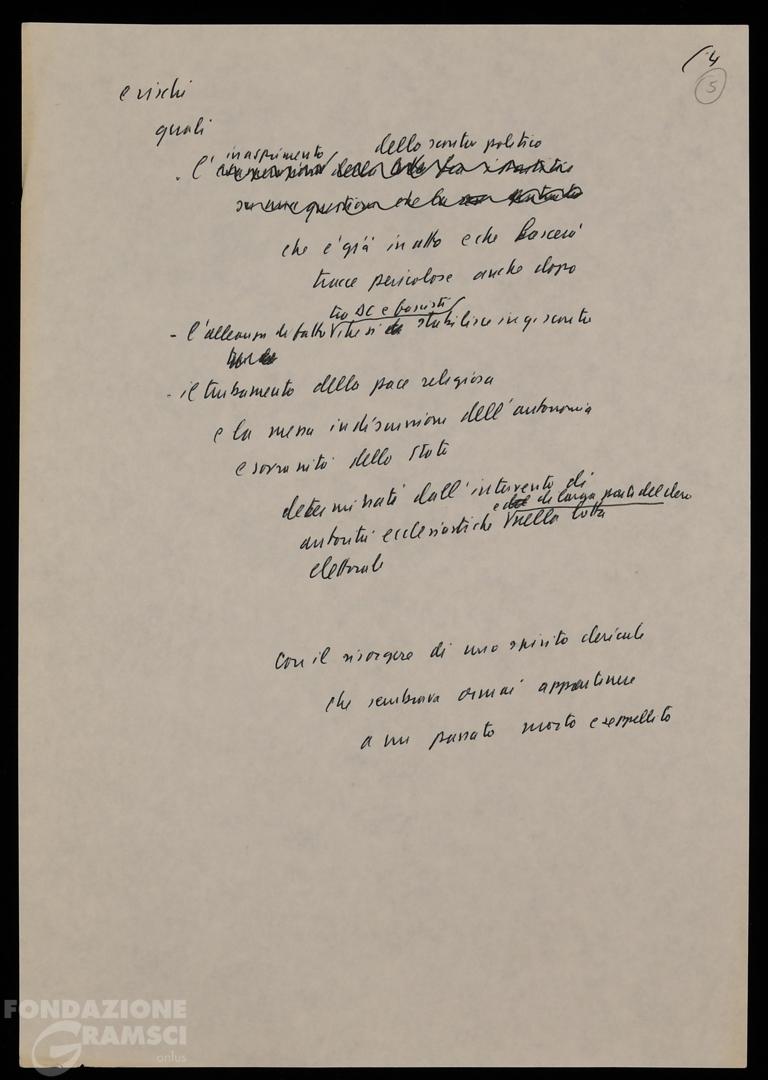 4
5
e rischi
quali
- l'inasprimento dello scontro politico
che è già in atto e che lascerà
tracce pericolose anche dopo
tra DC e fascisti
- l'alleanza di fatto che si stabilisce in questo scontro
- il turbamento della pace religiosa
e la messa in discussione dell'autonomia
e sovranità dello Stato
determinati dall'intervento di
e di larga parte del clero
autorità ecclesiastiche nella lotta
elettorale
con il risorgere di uno spirito clericale
che sembrava ormai appartenere
a un passato morto e seppellito
FONDAZIONE
GRAMSCI
onlus